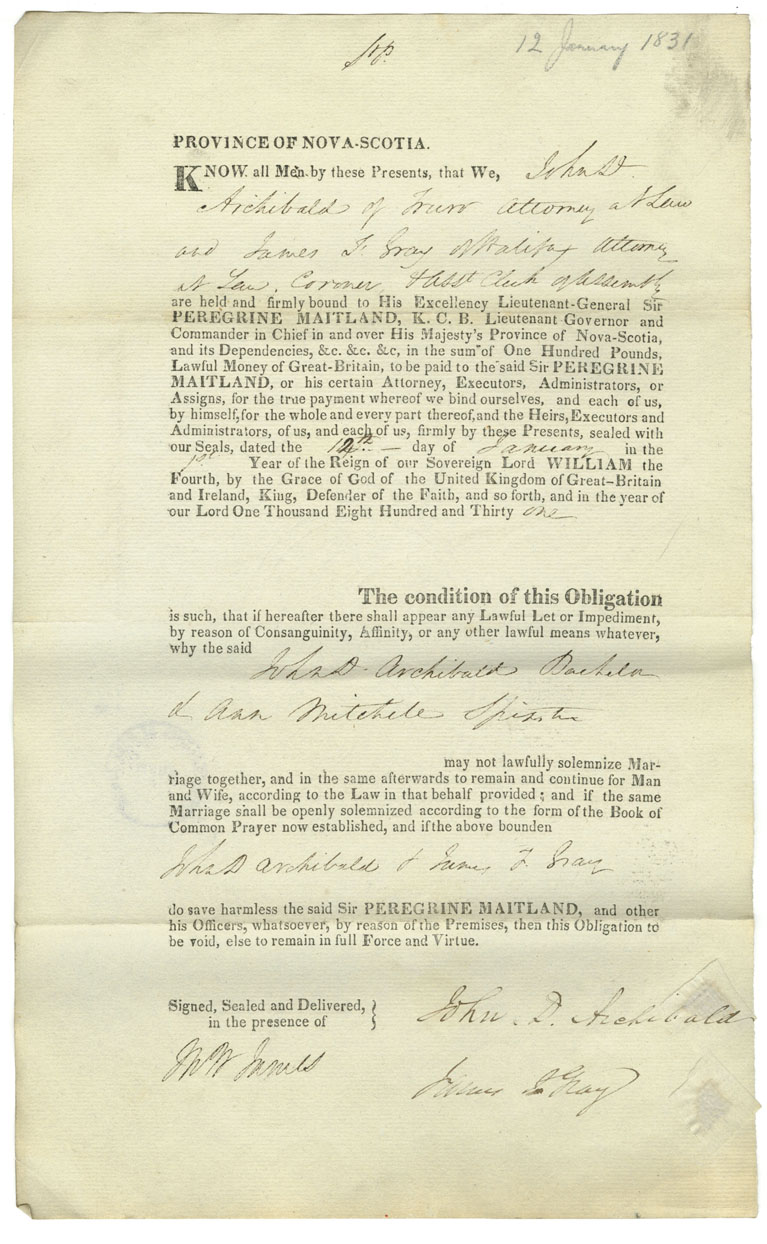 12 January 1831
PROVINCE OF NOVA-SCOTIA.
KNOW all Men by these Presents, that We, John D
Archibald of Truro Attorney at Law
and James F Gray of Halifax Attorney
at Law, Coroner, & Asst Clerk of Assembly
are held and firmly bound to His Excellency Lieutenant-General Sir
PEREGRINE MAITLAND, K. C. B. Lieutenant Governor and
Commander in Chief in and over His Majesty's Province of Nova-Scotia,
and its Dependencies, &c. &c. &c, in the sum of One Hundred Pounds,
Lawful Money of Great-Britain, to be paid to the said Sir PEREGRINE
MAITLAND, or his certain Attorney, Executors, Administrators, or
Assigns, for the true payment whereof we bind ourselves, and each of us,
by himself, for the whole and every part thereof, and the Heirs, Executors and
Administrators, of us, and each of us, firmly by these Presents, sealed with
our Seals, dated the 12th day of January in the
1st Year of the Reign of our Sovereign Lord WILLIAM the
Fourth, by the Grace of God of the United Kingdom of Great-Britain
and Ireland, King, Defender of the Faith, and so forth, and in the year of
our Lord One Thousand Eight Hundred and Thirty one
The condition of this Obligation
is such, that if hereafter there shall appear any Lawful Let or Impediment,
by reason of Consanguinity, Affinity, or any other lawful means whatever,
why the said
John D Archibald Bachelor
& Ann Mitchele Spinster
may not lawfully solemnize Mar-
riage together, and in the same afterwards to remain and continue for Man
and Wife, according to the Law in that behalf provided; and if the same
Marriage shall be openly solemnized according to the form of the Book of
Common Prayer now established, and if the above bounden
John D Archibald & James F Gray
do save harmless the said Sir PEREGRINE MAITLAND, and other
his Officers, whatsoever, by reason of the Premises, then this Obligation to
be void, else to remain in full Force and Virtue.
Signed, Sealed and Delivered,
in the presence of
John D. Archibald
James F Gray